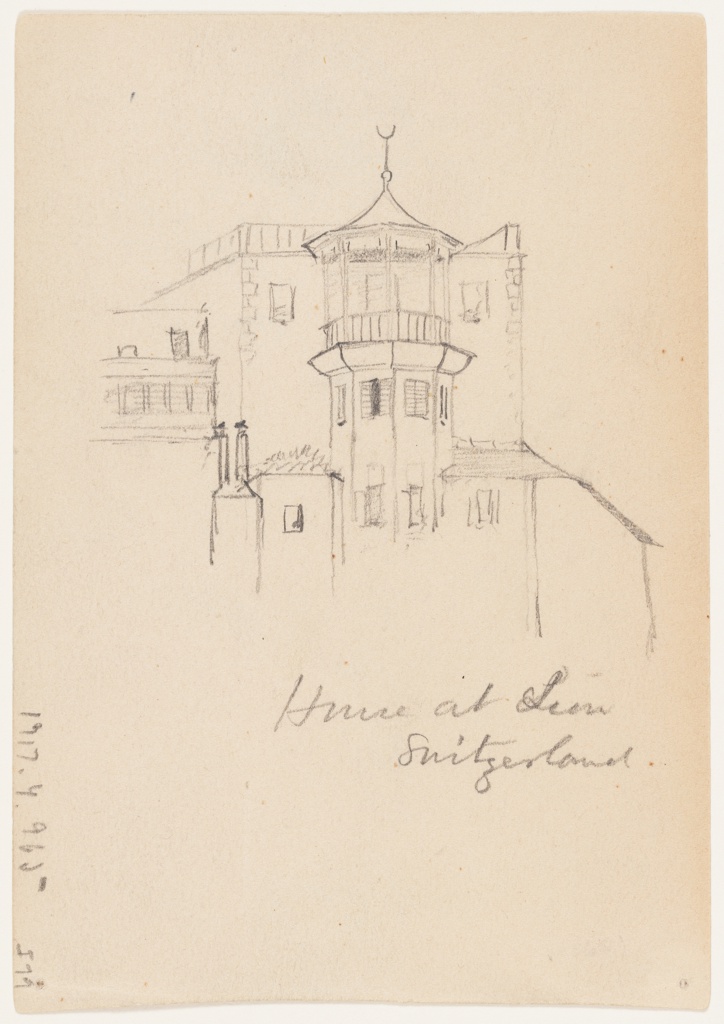 House at Sion
Switzerland
1917.4.